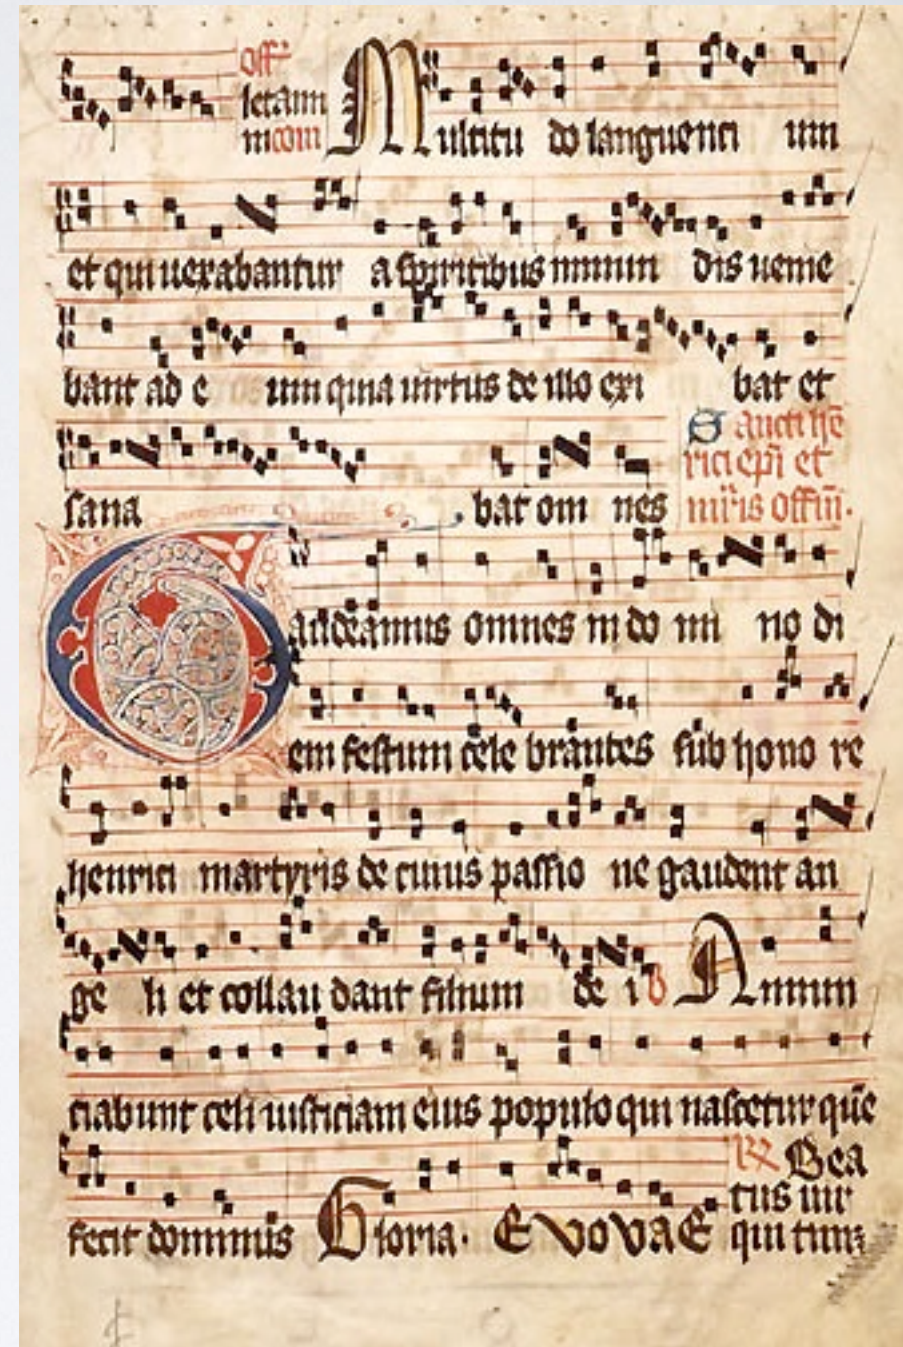 Off
letam
in com Multitu do languenti um
et qui uexabantur a spiritibus inmun dis uenie
bant ad e um quia uirtus de illo exi bat et
sana bat om nes
Sancti he
rici epi et
mris offm.
Gaudeamus omnes in do mi no di
em festum cele brantes sub hono re
henrici martyris de cuius passio ne gaudent an
ge li et collau dant filium de i Annun
ciabunt celi iusticiam eius populo qui nascetur que
fecit dominus Gloria. EVOVAE
Bea
tus uir
qui tim